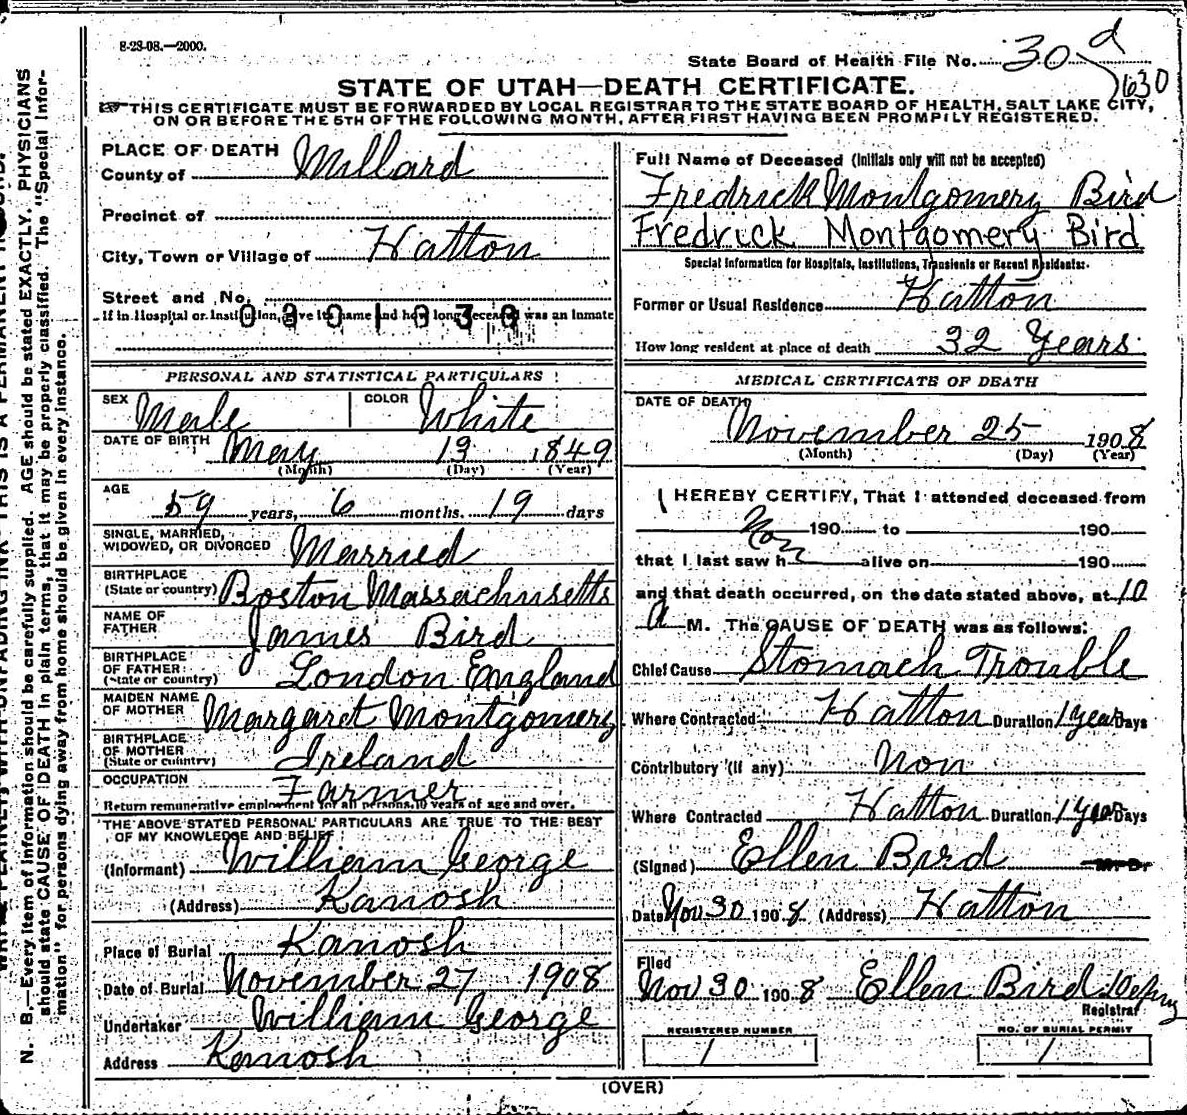 8-23-08.—2000.
State Board of Health File No. 30 d
630
STATE OF UTAH—DEATH CERTIFICATE.
THIS CERTIFICATE MUST BE FORWARDED BY LOCAL REGISTRAR TO THE STATE BOARD OF HEALTH, SALT LAKE CITY,
ON OR BEFORE THE 5TH OF THE FOLLOWING MONTH, AFTER FIRST HAVING BEEN PROMPTLY REGISTERED.
PLACE OF DEATH
County of Millard
Precinct of
City, Town or Village of Hatton
Street and No.
If in Hospital or Institution, give its name and how long deceased was an inmate
PERSONAL AND STATISTICAL PARTICULARS
SEX Male COLOR White
DATE OF BIRTH May 13 1849
(Month) (Day) (Year)
AGE
59 years, 6 months. 19 days
SINGLE, MARRIED,
WIDOWED, OR DIVORCED Married
BIRTHPLACE
(State or country) Boston Massachusetts
NAME OF
FATHER James Bird
BIRTHPLACE
OF FATHER
(State or country) London England
MAIDEN NAME
OF MOTHER Margaret Montgomery
BIRTHPLACE
OF MOTHER
(State or country) Ireland
OCCUPATION Farmer
Return remunerative employment for all persons, 10 years of age and over.
THE ABOVE STATED PERSONAL PARTICULARS ARE TRUE TO THE BEST
OF MY KNOWLEDGE AND BELIEF
(Informant) William George
(Address) Kanosh
Place of Burial Kanosh
Date of Burial November 27 1908
Undertaker William George
Address Kanosh
Full Name of Deceased (Initials only will not be accepted)
Fredrick Montgomery Bird
Fredrick Montgomery Bird
Special Information for Hospitals, Institutions, Transients or Recent Residents:
Former or Usual Residence Hatton
How long resident at place of death 32 Years
MEDICAL CERTIFICATE OF DEATH
DATE OF DEATH
November 25 1908
(Month) (Day) (Year)
I HEREBY CERTIFY, That I attended deceased from
Non 190 to 190
that I last saw h alive on 190
and that death occurred, on the date stated above, at 10
A M. The CAUSE OF DEATH was as follows:
Chief Cause Stomach Trouble
Where Contracted Hatton Duration 1 year Days
Contributory (if any) Non
Where Contracted Hatton Duration 1 year Days
(Signed) Ellen Bird
Date Nov 30 1908 (Address) Hatton
Filed
Nov 30 1908 Ellen Bird Depuy
Registrar
REGISTERED NUMBER
1
NO. OF BURIAL PERMIT
1
(OVER)
N. B.—Every item of information should be carefully supplied. AGE should be stated EXACTLY. PHYSICIANS
should state CAUSE OF DEATH in plain terms, that it may be properly classified. The "Special Infor-
mation" for persons dying away from home should be given in every instance.